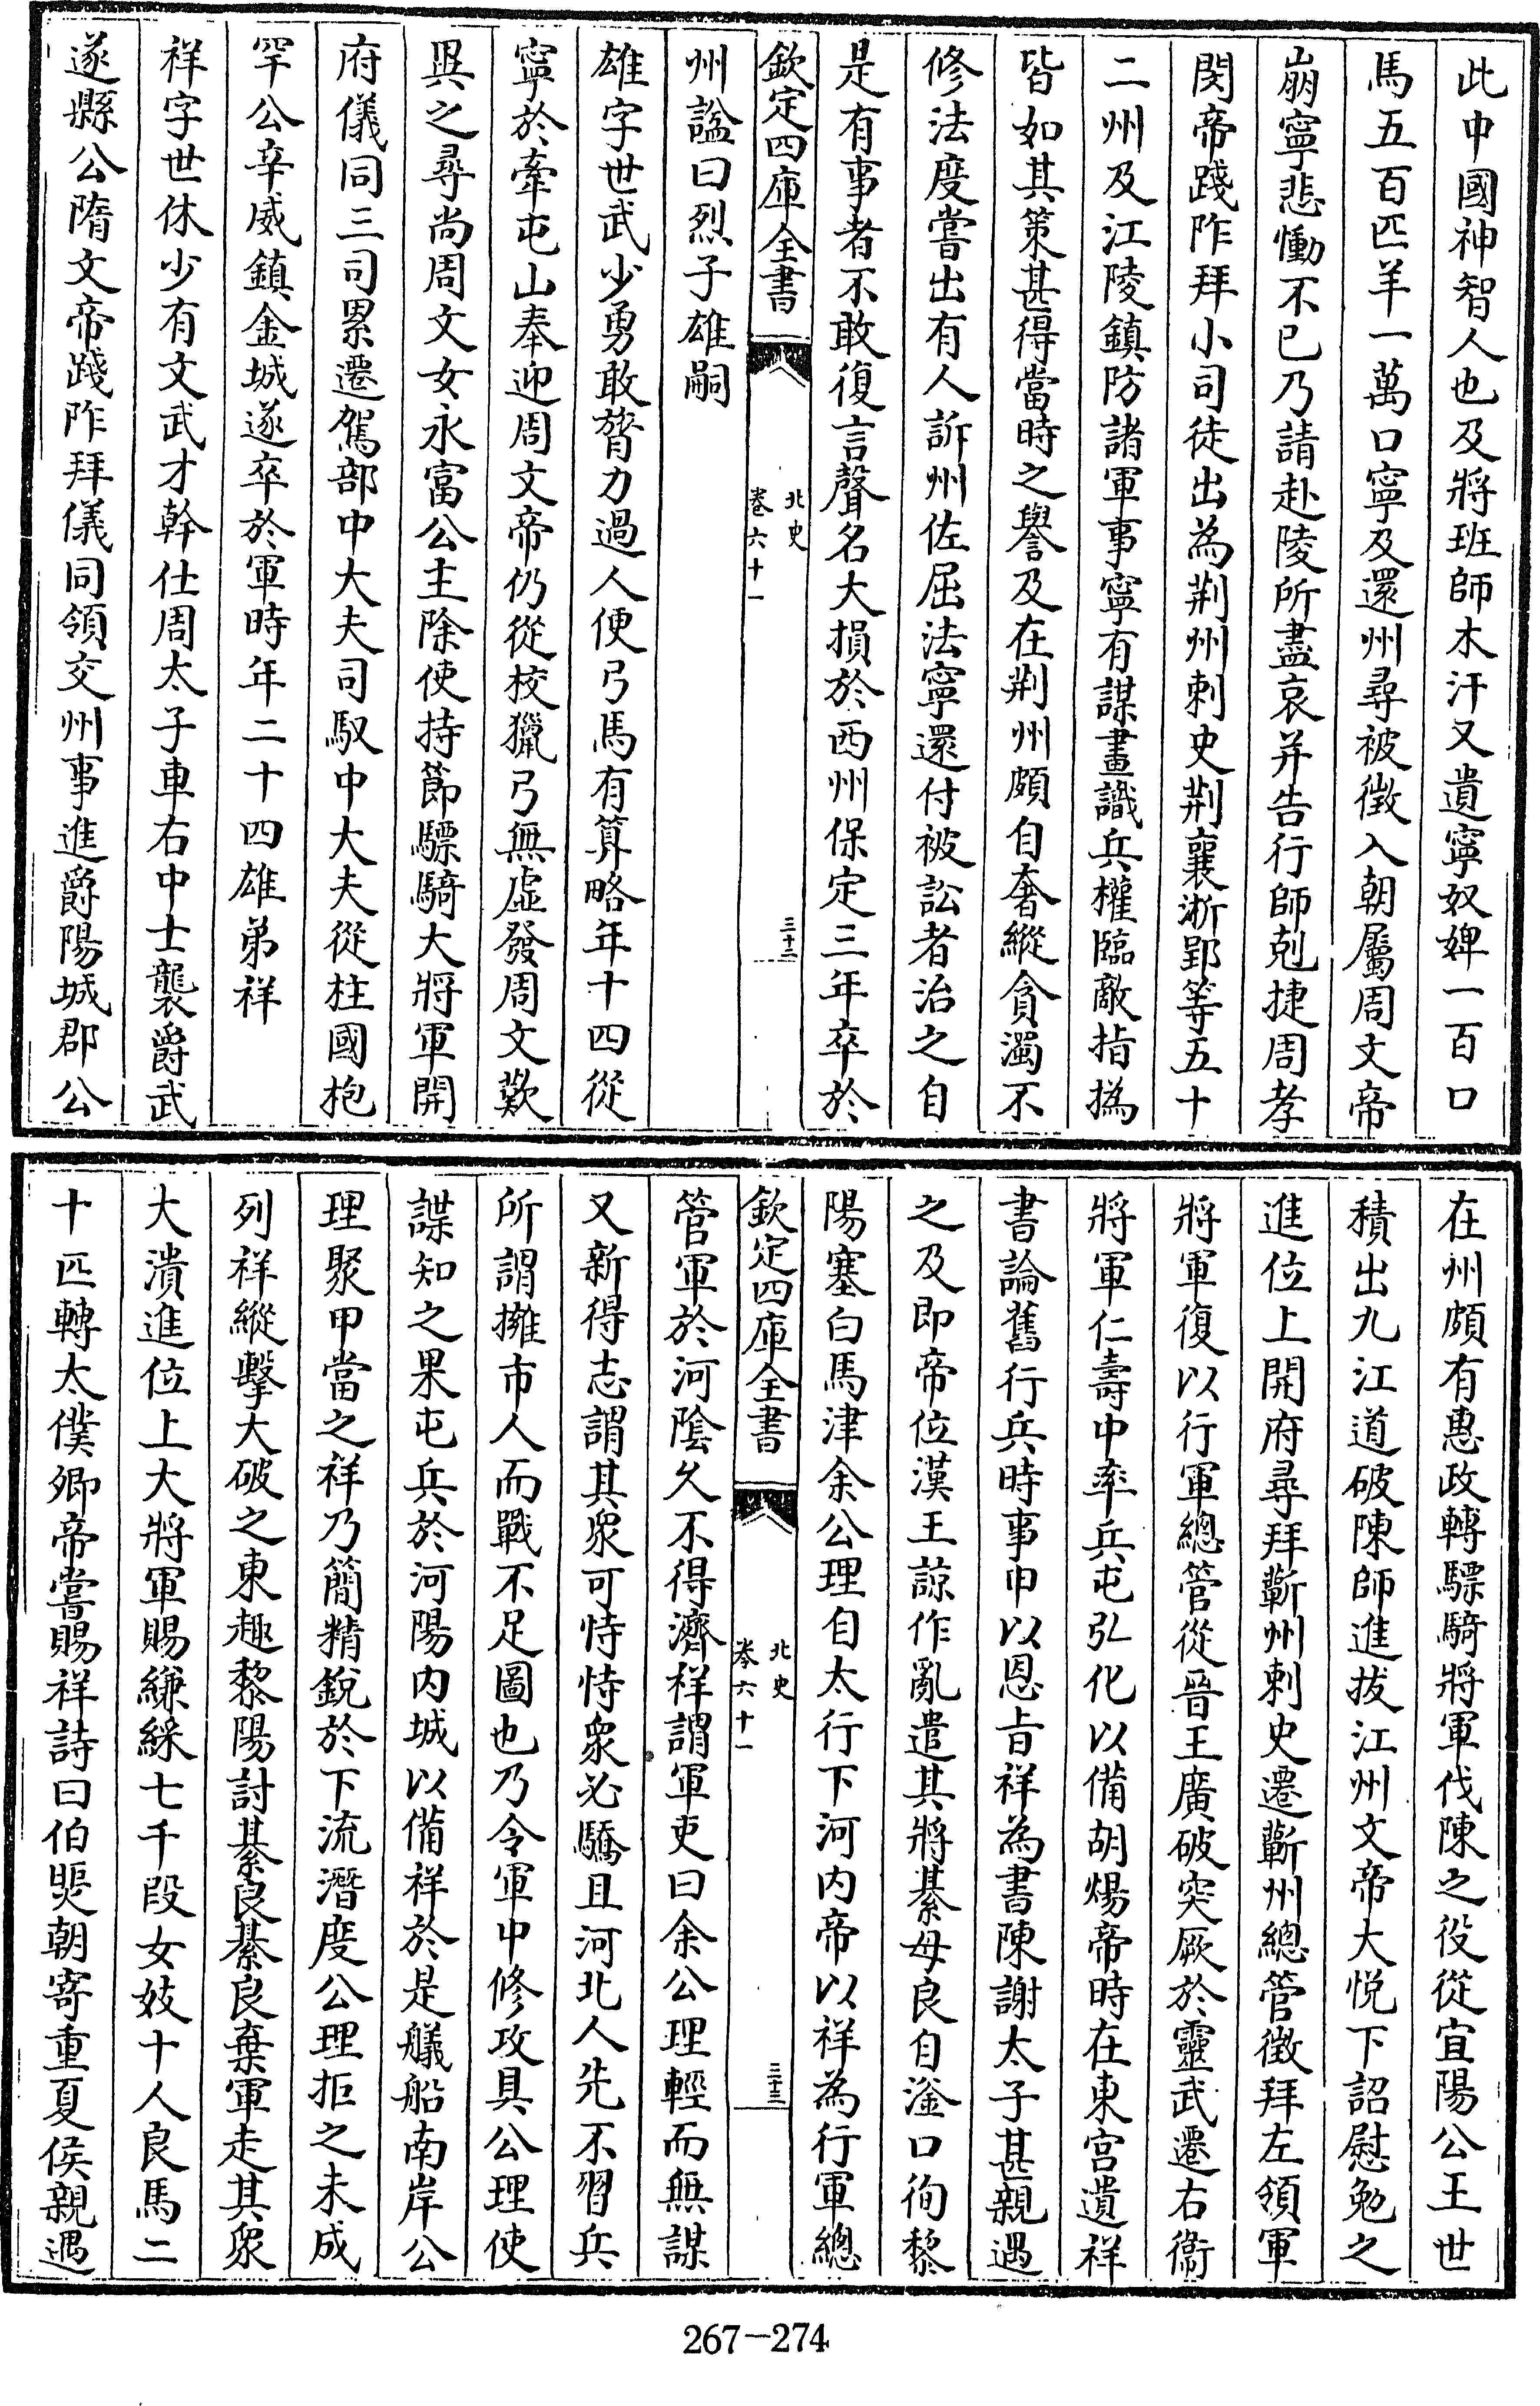 此中國神智人也及將班師木汗又遺寧奴婢一百口
馬五百匹羊一萬口寧及還州尋被徵入朝屬周文帝
崩寧悲慟不已乃請赴陵所盡哀并告行師剋捷周孝
閔帝踐阼拜小司徒出為荆州刺史荆襄淅郢等五十
二州及江陵鎮防諸軍事寧有謀畫識兵權臨敵指撝
皆如其策甚得當時之譽及在荆州頗自奢縱貪濁不
修法度嘗出有人訴州佐屈法寧還付被訟者治之自
是有事者不敢復言聲名大損於西州保定三年卒於
欽定四庫全書 北史 卷六十一 三十二
州諡曰烈子雄嗣
雄字世武少勇敢膂力過人便弓馬有算略年十四從
寧於牽屯山奉迎周文帝仍從校獵弓無虛發周文歎
異之尋尚周文女永富公主除使持節驃騎大將軍開
府儀同三司累遷駕部中大夫司馭中大夫從柱國枹
罕公辛威鎮金城遂卒於軍時年二十四雄弟祥
祥字世休少有文武才幹仕周太子車右中士襲爵武
遂縣公隋文帝踐阼拜儀同領交州事進爵陽城郡公
在州頗有惠政轉驃騎將軍伐陳之役從宜陽公王世
積出九江道破陳師進拔江州文帝大悅下詔慰勉之
進位上開府尋拜蘄州刺史遷蘄州總管徵拜左領軍
將軍復以行軍總管從晉王廣破突厥於靈武遷右衞
將軍仁壽中率兵屯弘化以備胡煬帝時在東宫遺祥
書論舊行兵時事申以恩旨祥為書陳謝太子甚親遇
之及即帝位漢王諒作亂遣其將綦母良自滏口徇黎
陽塞白馬津余公理自太行下河内帝以祥為行軍總
欽定四庫全書 北史 卷六十一 三十三
管軍於河陰久不得濟祥謂軍吏曰余公理輕而無謀
又新得志謂其衆可恃恃衆必驕且河北人先不習兵
所謂擁市人而戰不足圖也乃令軍中修攻具公理使
諜知之果屯兵於河陽内城以備祥於是艤船南岸公
理聚甲當之祥乃簡精銳於下流潛度公理拒之未成
列祥縱擊大破之東趣黎陽討綦良綦良棄軍走其衆
大潰進位上大將軍賜縑綵七千段女妓十人良馬二
十匹轉太僕卿帝嘗賜祥詩曰伯煚朝寄重夏侯親遇
267-274